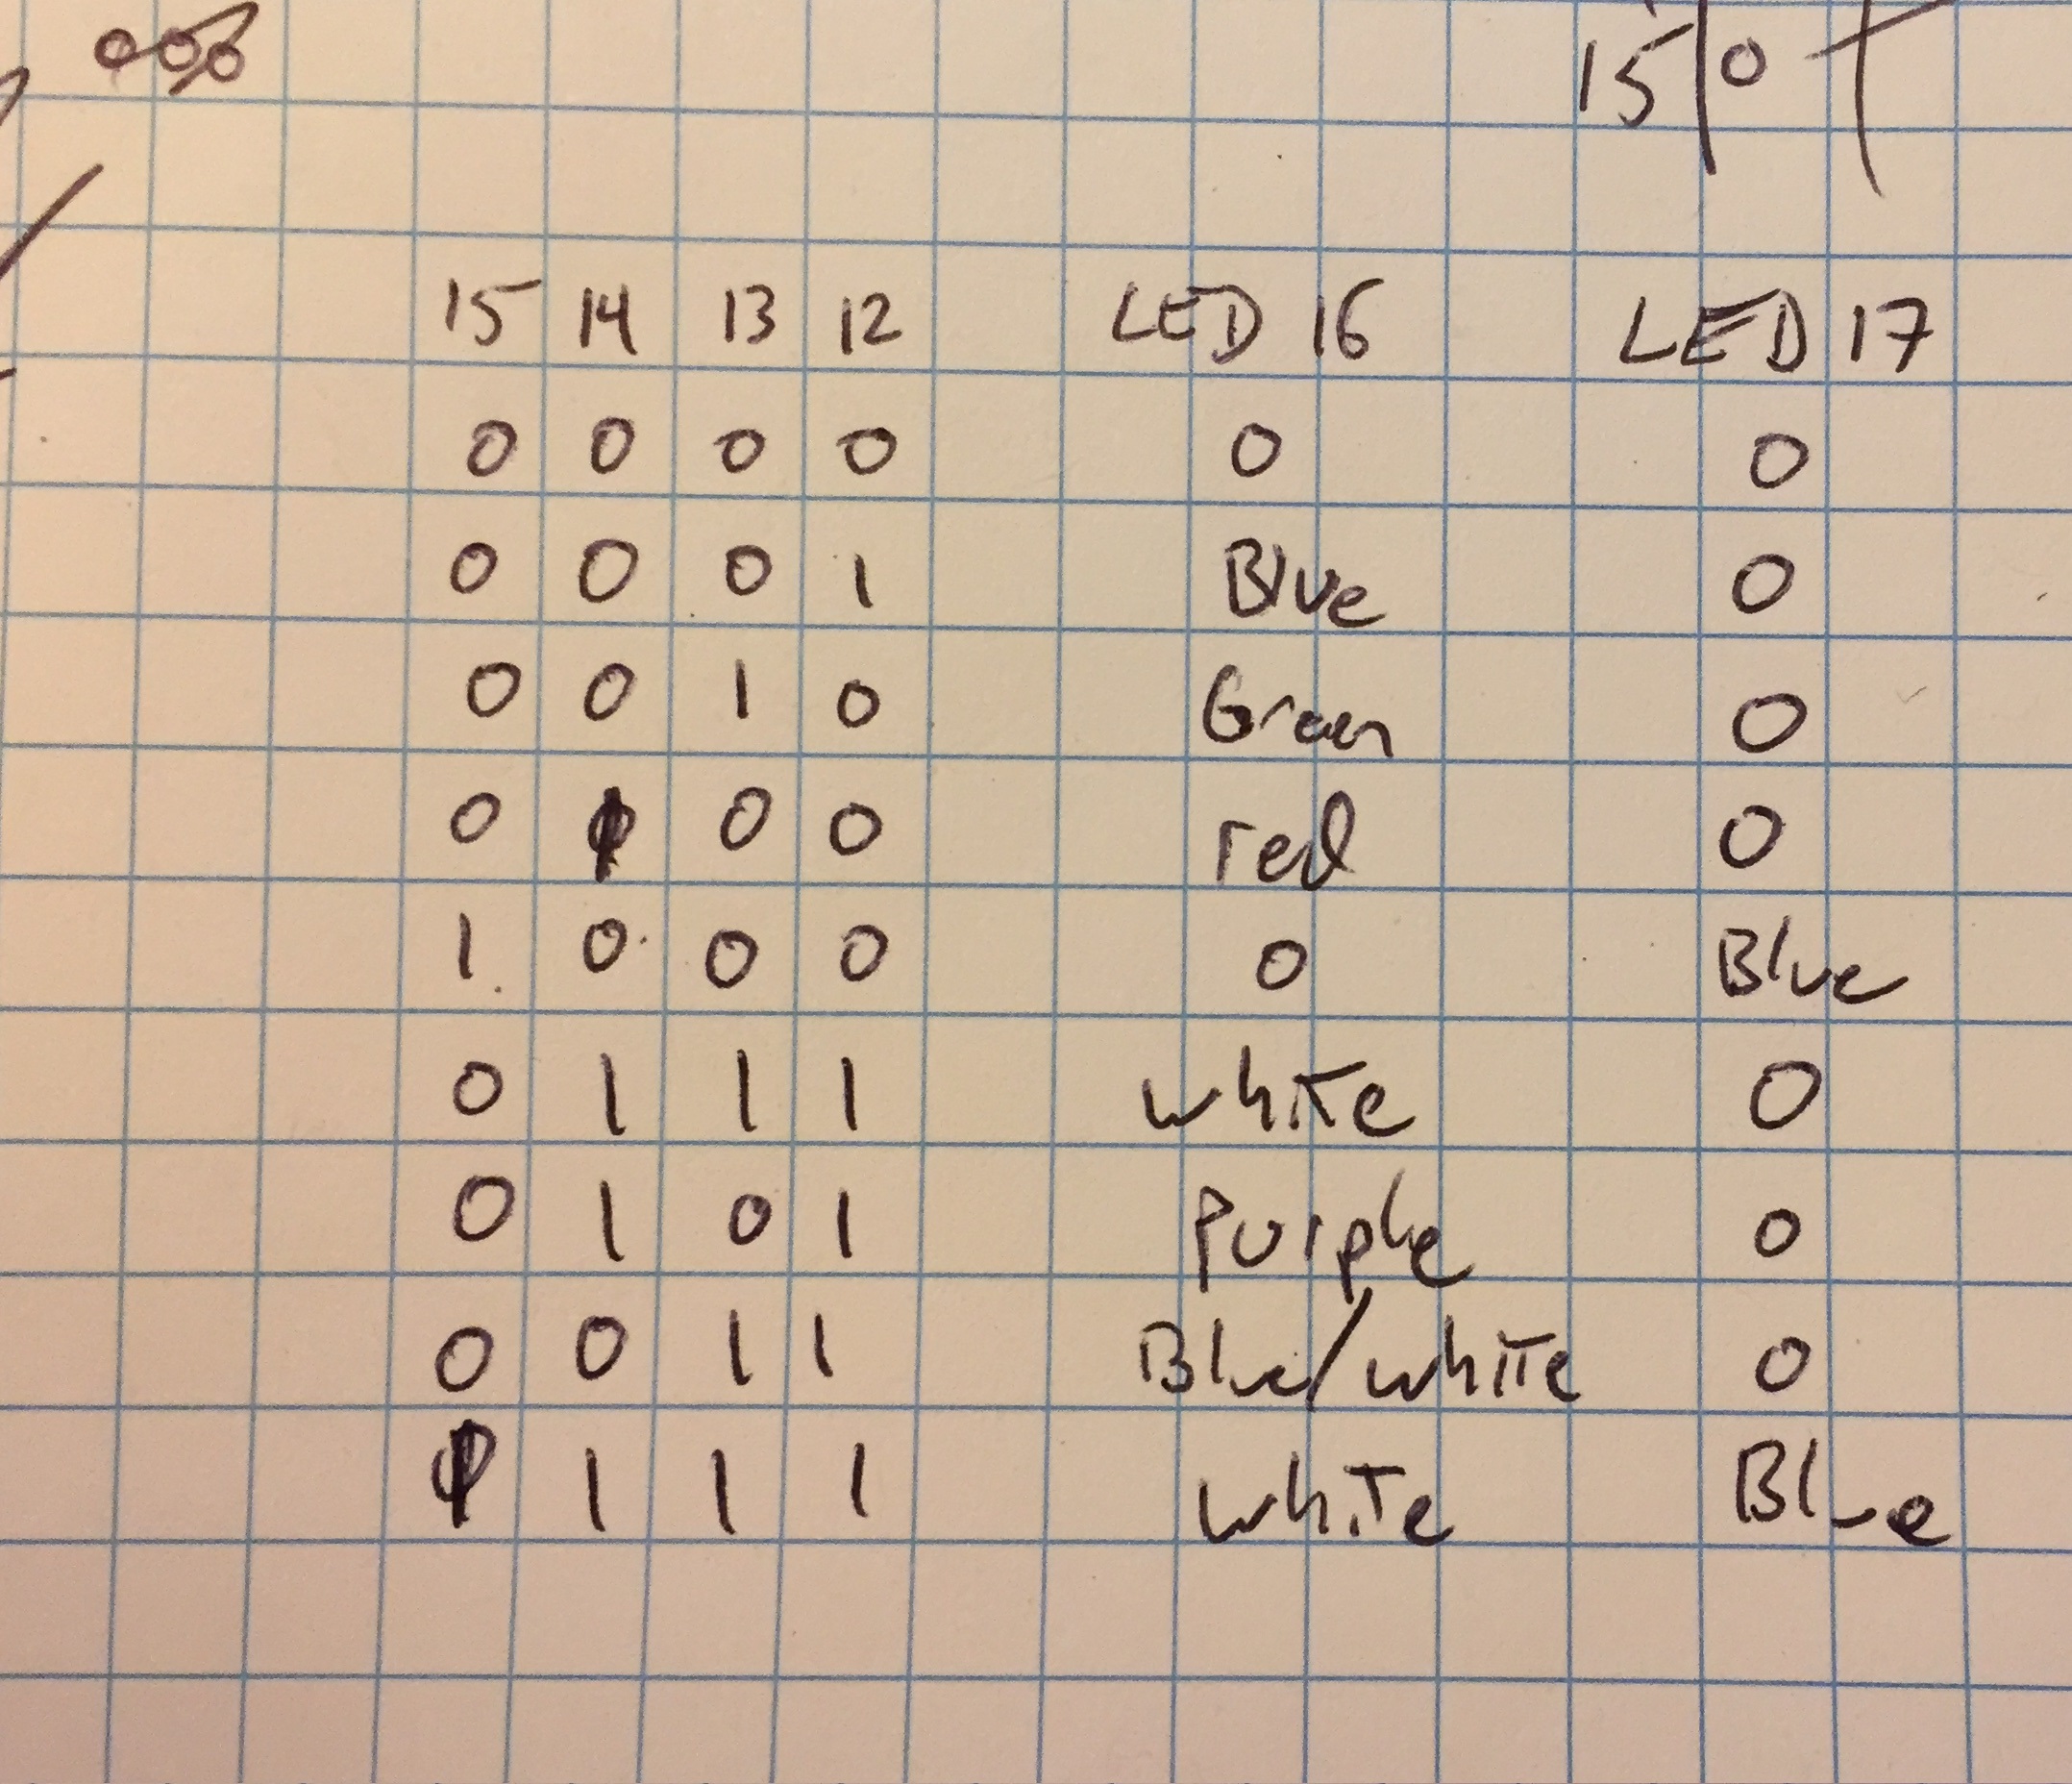 15 0
15 14 13 12 LED 16 LED 17
0 0 0 0 0 0
0 0 0 1 Blue 0
0 0 1 0 Green 0
0 1 0 0 red 0
1 0 0 0 0 Blue
0 1 1 1 white 0
0 1 0 1 Purple 0
0 0 1 1 Blue/white 0
1 1 1 1 white Blue